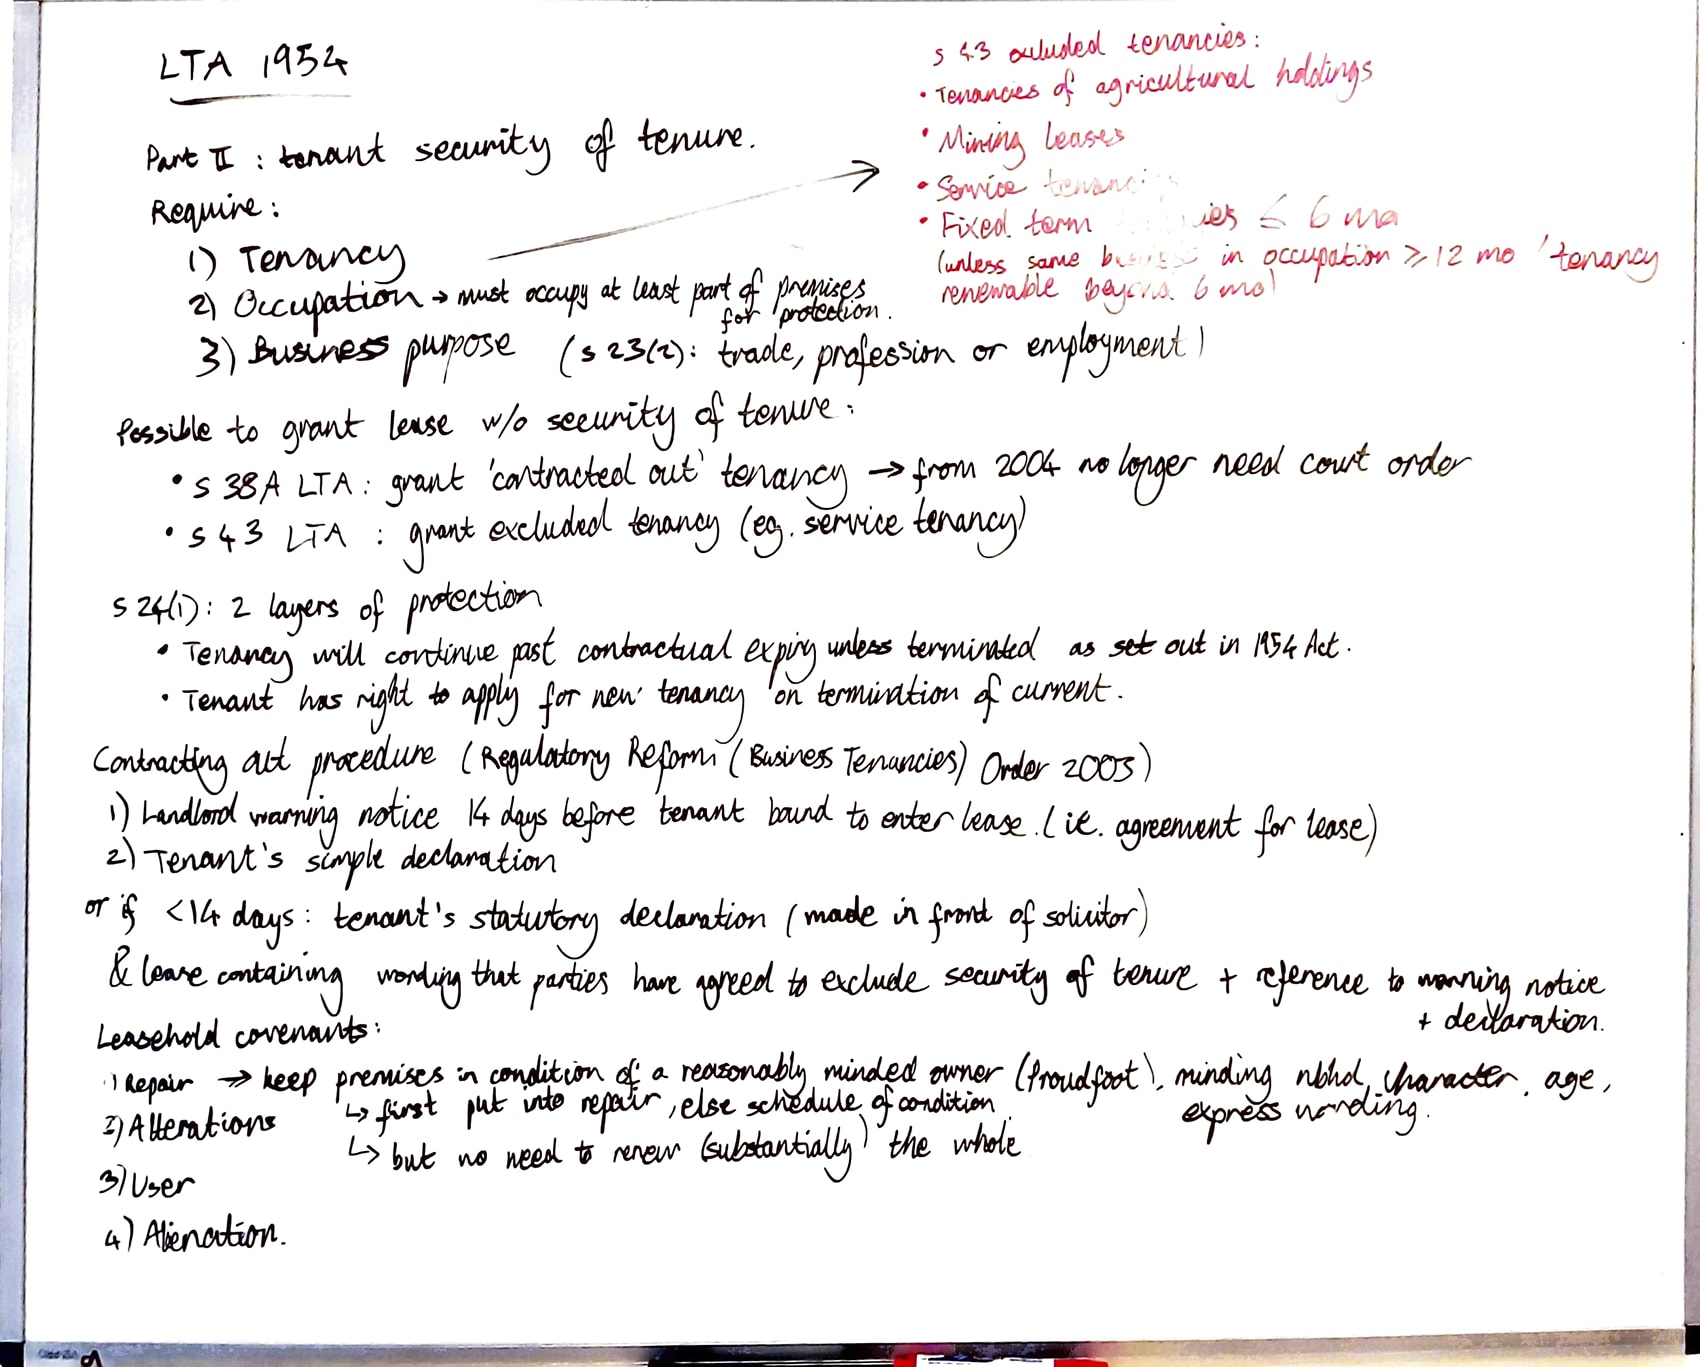 LTA 1954
Part II : tenant security of tenure.
Require :
1) Tenancy
2) Occupation → must occupy at least part of premises
for protection.
3) Business purpose (s 23(2): trade, profession or employment)
s 43 excluded tenancies:
• Tenancies of agricultural holdings
• Mining leases
• Service
• Fixed term ≤ 6 mo
(unless same in occupation ≥ 12 mo / tenancy
renewable beyond 6 mo)
Possible to grant lease w/o security of tenure :
• s 38A LTA : grant 'contracted out' tenancy → from 2004 no longer need court order
• s 43 LTA : grant excluded tenancy (eg. service tenancy)
s 24(1) : 2 layers of protection
• Tenancy will continue past contractual expiry unless terminated as set out in 1954 Act.
• Tenant has right to apply for new tenancy on termination of current.
Contracting out procedure (Regulatory Reform (Business Tenancies) Order 2003)
1) Landlord warning notice 14 days before tenant bound to enter lease. (ie. agreement for lease)
2) Tenant's simple declaration
or if <14 days : tenant's statutory declaration (made in front of solicitor)
& lease containing wording that parties have agreed to exclude security of tenure + reference to warning notice
+ declaration.
Leasehold covenants:
1) Repair → keep premises in condition of a reasonably minded owner (Proudfoot), minding nbhd, character, age,
express wording.
↳ first put into repair, else schedule of condition
2) Alterations
↳ but no need to renew (substantially) the whole
3) User
4) Alienation.